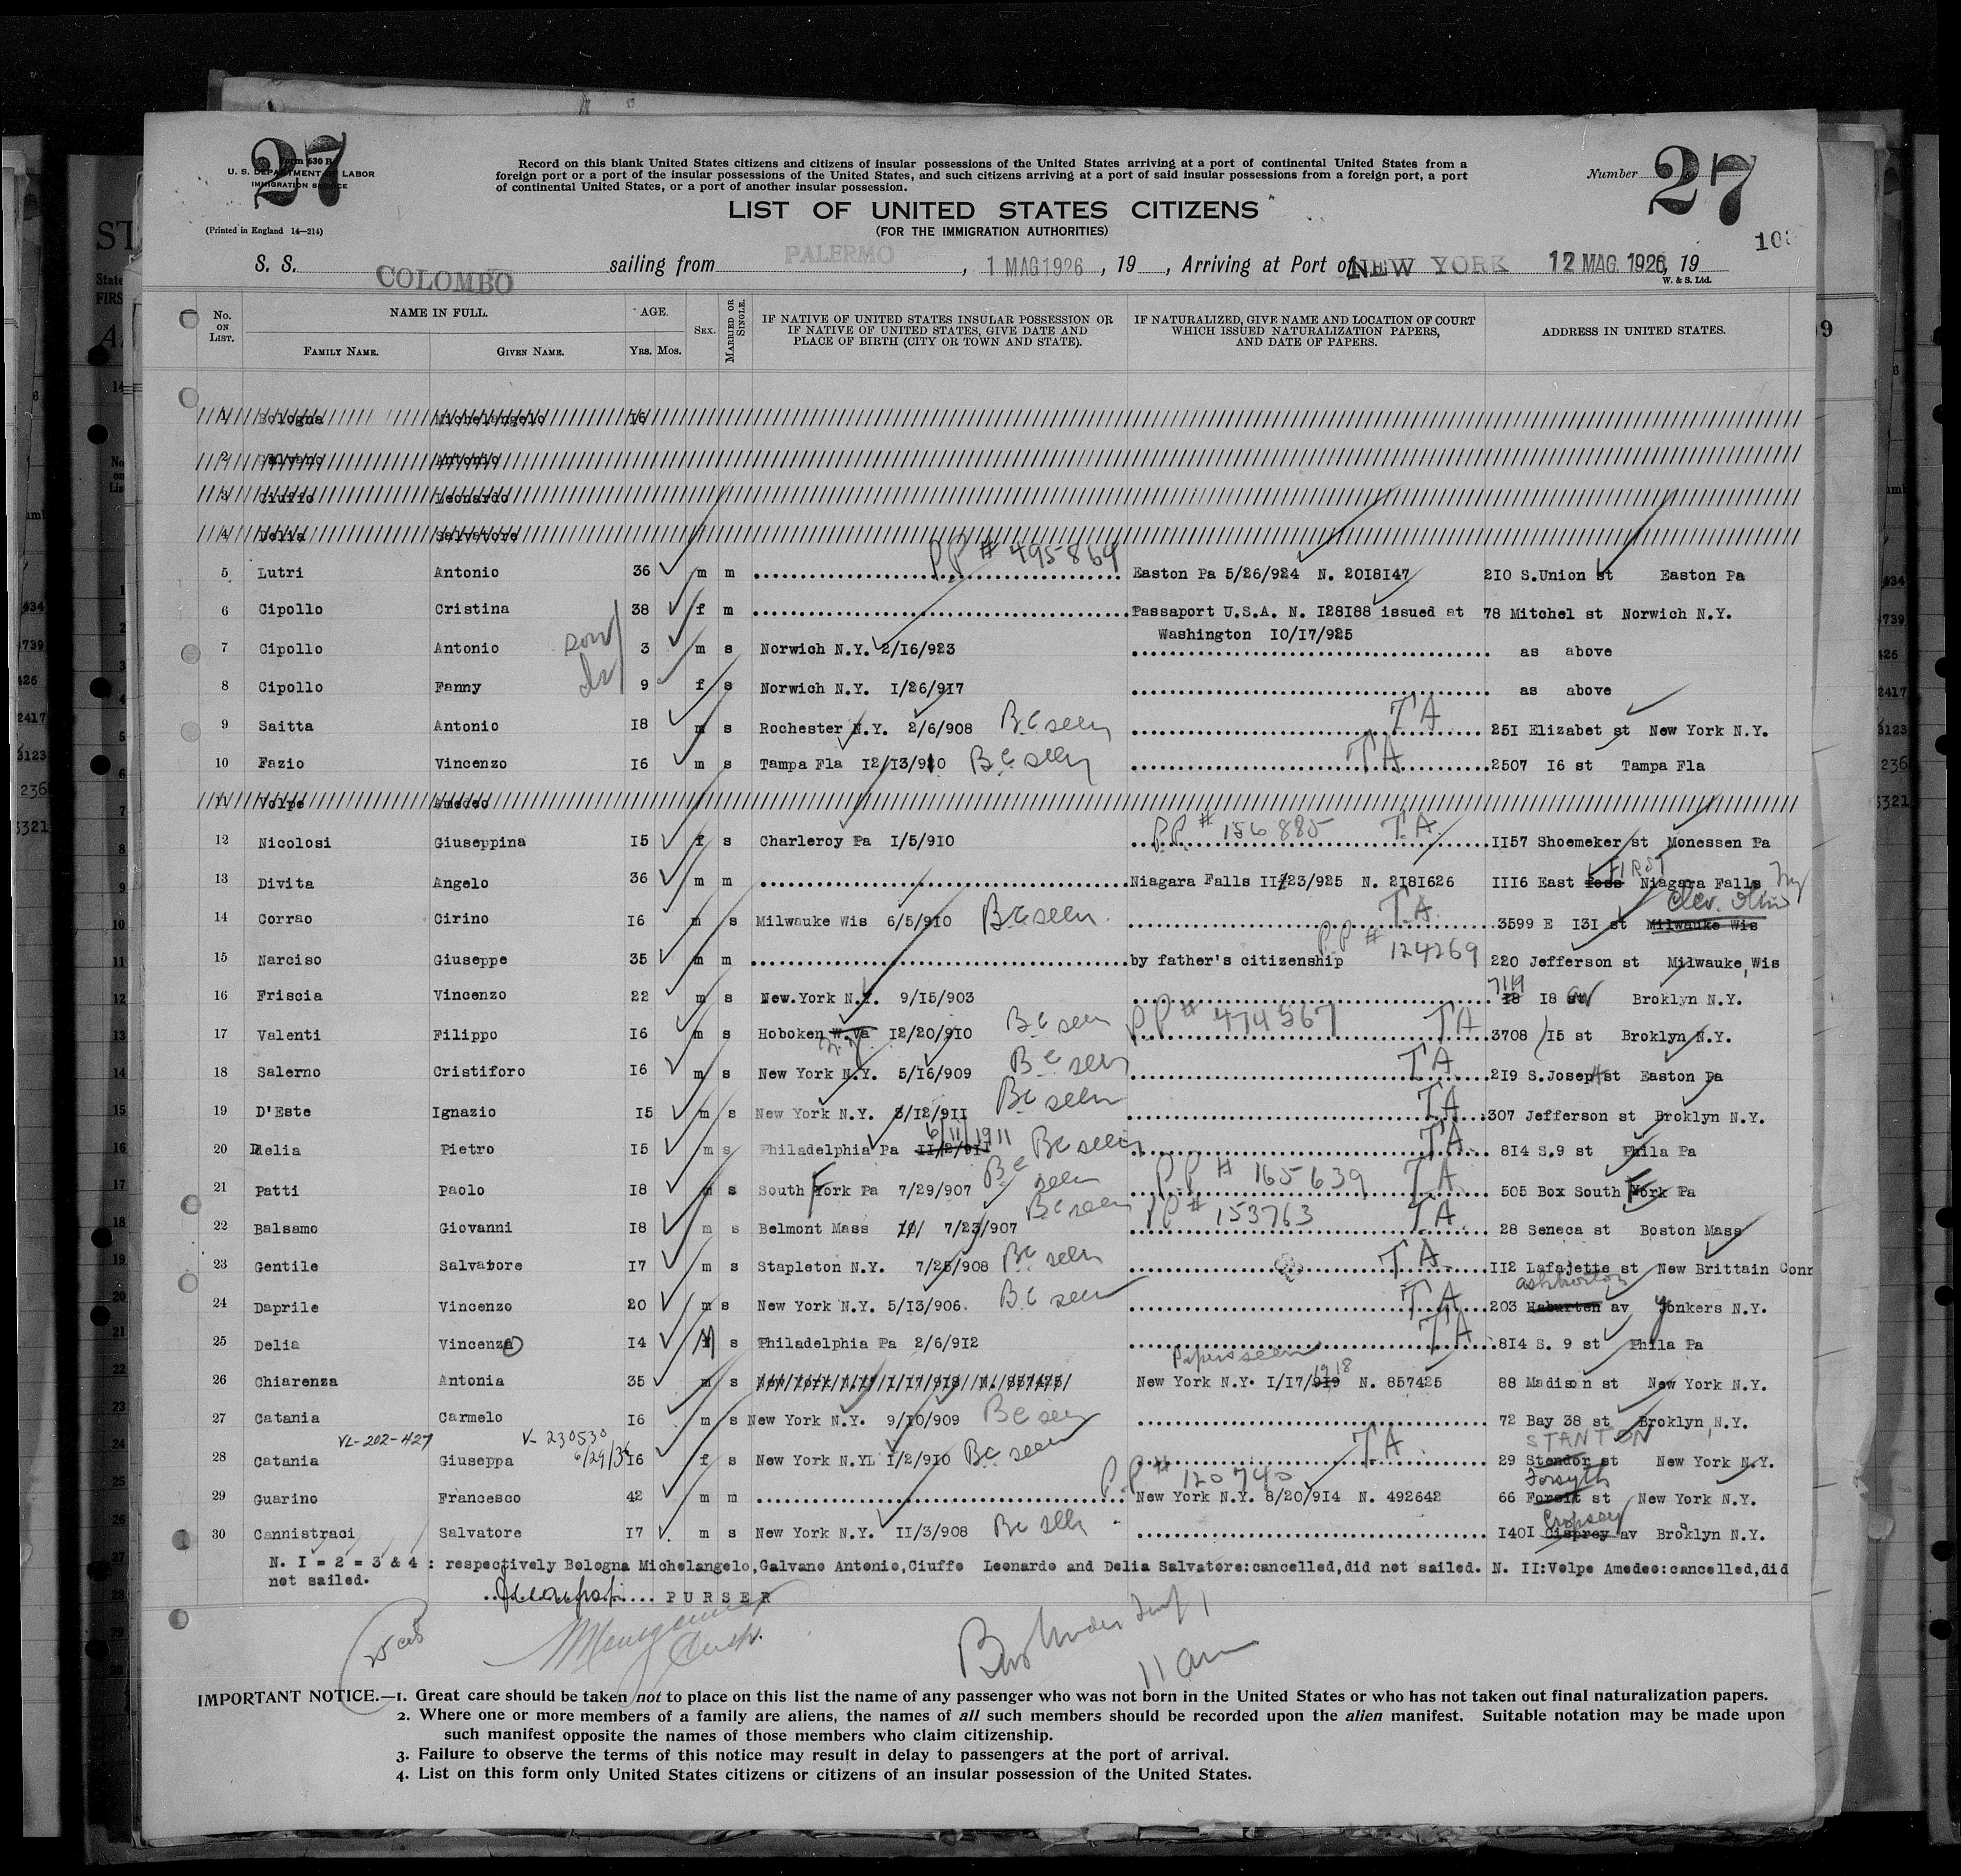 27
Form 630 B
U. S. DEPARTMENT OF LABOR
IMMIGRATION SERVICE
(Printed in England 14—214)
Record on this blank United States citizens and citizens of insular possessions of the United States arriving at a port of continental United States from a
foreign port or a port of the insular possessions of the United States, and such citizens arriving at a port of said insular possessions from a foreign port, a port
of continental United States, or a port of another insular possession.
Number 27
LIST OF UNITED STATES CITIZENS
(FOR THE IMMIGRATION AUTHORITIES)
S. S. COLOMBO sailing from PALERMO, 1 MAG 1926, 19 , Arriving at Port of NEW YORK 12 MAG. 1926, 19
W. & S. Ltd.
No. ON LIST. NAME IN FULL. FAMILY NAME. GIVEN NAME. AGE. YRS. MOS. SEX. MARRIED OR SINGLE. IF NATIVE OF UNITED STATES INSULAR POSSESSION OR IF NATIVE OF UNITED STATES, GIVE DATE AND PLACE OF BIRTH (CITY OR TOWN AND STATE). IF NATURALIZED, GIVE NAME AND LOCATION OF COURT WHICH ISSUED NATURALIZATION PAPERS, AND DATE OF PAPERS. ADDRESS IN UNITED STATES.
1 Bologna Michelangelo I6
2 Galvano Antonio
3 Ciuffo Leonardo
4 Delia Salvatore
PP # 495869
5 Lutri Antonio 36 m m Easton Pa 5/26/924 N. 20I8I47 2I0 S.Union st Easton Pa
6 Cipollo Cristina 38 f m Passaport U.S.A. N. I28I88 issued at 78 Mitchel st Norwich N.Y.
Washington I0/I7/925
7 Cipollo Antonio son 3 m s Norwich N.Y. 2/I6/923 as above
8 Cipollo Fanny 9 f s Norwich N.Y. I/26/9I7 as above
9 Saitta Antonio I8 m s Rochester N.Y. 2/6/908 B.C seen TA 25I Elizabet st New York N.Y.
10 Fazio Vincenzo I6 m s Tampa Fla I2/I3/910 B.C seen TA 2507 I6 st Tampa Fla
11 Volpe Amedeo
12 Nicolosi Giuseppina I5 f s Charleroy Pa I/5/9I0 P.P. # 156885 T.A. II57 Shoemeker st Monessen Pa
13 Divita Angelo 36 m m Niagara Falls II/23/925 N. 2I8I626 III6 East foss FIRST Niagara Falls Ny
14 Corrao Cirino I6 m s Milwauke Wis 6/5/9I0 B.C seen. T.A. 3599 E I3I st Milwauke Wis Clev. Ohio
15 Narciso Giuseppe 35 m m by father's citizenship P.P # 124269 220 Jefferson st Milwauke, Wis
16 Friscia Vincenzo 22 m s New.York N.Y. 9/I5/903 I8 7119 I8 st av Broklyn N.Y.
17 Valenti Filippo I6 m s Hoboken W.Va N.J. I2/20/9I0 B.C seen PP # 474567 TA 3708 I5 st Broklyn N.Y.
18 Salerno Cristiforo I6 m s New York N.Y. 5/I6/909 B.C seen TA 2I9 S.Joseph st Easton Pa
19 D'Este Ignazio I5 m s New York N.Y. 3/I2/9II B.C seen TA 307 Jefferson st Broklyn N.Y.
20 Delia Pietro I5 m s Philadelphia Pa II/2/9II 6/11/1911 BC seen TA 8I4 S.9 st Phila Pa
21 Patti Paolo I8 m s South York Pa 7/29/907 B.C seen PP # 165639 TA 505 Box South York Pa
22 Balsamo Giovanni I8 m s Belmont Mass 7/23/907 BC seen PP # 153763 TA 28 Seneca st Boston Mass
23 Gentile Salvatore I7 m s Stapleton N.Y. 7/25/908 BC seen TA II2 Lafajette st New Brittain Conn
24 Daprile Vincenzo 20 m s New York N.Y. 5/I3/906. B.C seen TA 203 Haburten Ashburton av Yonkers N.Y.
25 Delia Vincenzo I4 M s Philadelphia Pa 2/6/9I2 TA 8I4 S. 9 st Phila Pa
Papers seen
26 Chiarenza Antonia 35 m s New York N.Y. I/I7/9I8 N. 857425 New York N.Y. I/I7/919 1918 N. 857425 88 Madison st New York N.Y.
27 Catania Carmelo I6 m s New York N.Y. 9/I0/909 BC seen 72 Bay 38 st Broklyn, N.Y.
VL-202-427 V-230530 6/29/36
28 Catania Giuseppa I6 f s New York N.Y. I/2/9I0 BC seen TA 29 Stendor STANTON st New York N.Y.
29 Guarino Francesco 42 m m P.P # 120740 New York N.Y. 8/20/9I4 N. 492642 66 Forsit Forsyth st New York N.Y.
30 Cannistraci Salvatore I7 m s New York N.Y. II/3/908 BC seen I40I Cisprey Cropsey av Broklyn N.Y.
N. I = 2 = 3 & 4 : respectively Bologna Michelangelo,Galvano Antonio,Ciuffo Leonardo and Delia Salvatore:cancelled,did not sailed. N. II:Volpe Amedeo:cancelled,did
not sailed.
PURSER
11 am
IMPORTANT NOTICE.—1. Great care should be taken not to place on this list the name of any passenger who was not born in the United States or who has not taken out final naturalization papers.
2. Where one or more members of a family are aliens, the names of all such members should be recorded upon the alien manifest. Suitable notation may be made upon
such manifest opposite the names of those members who claim citizenship.
3. Failure to observe the terms of this notice may result in delay to passengers at the port of arrival.
4. List on this form only United States citizens or citizens of an insular possession of the United States.